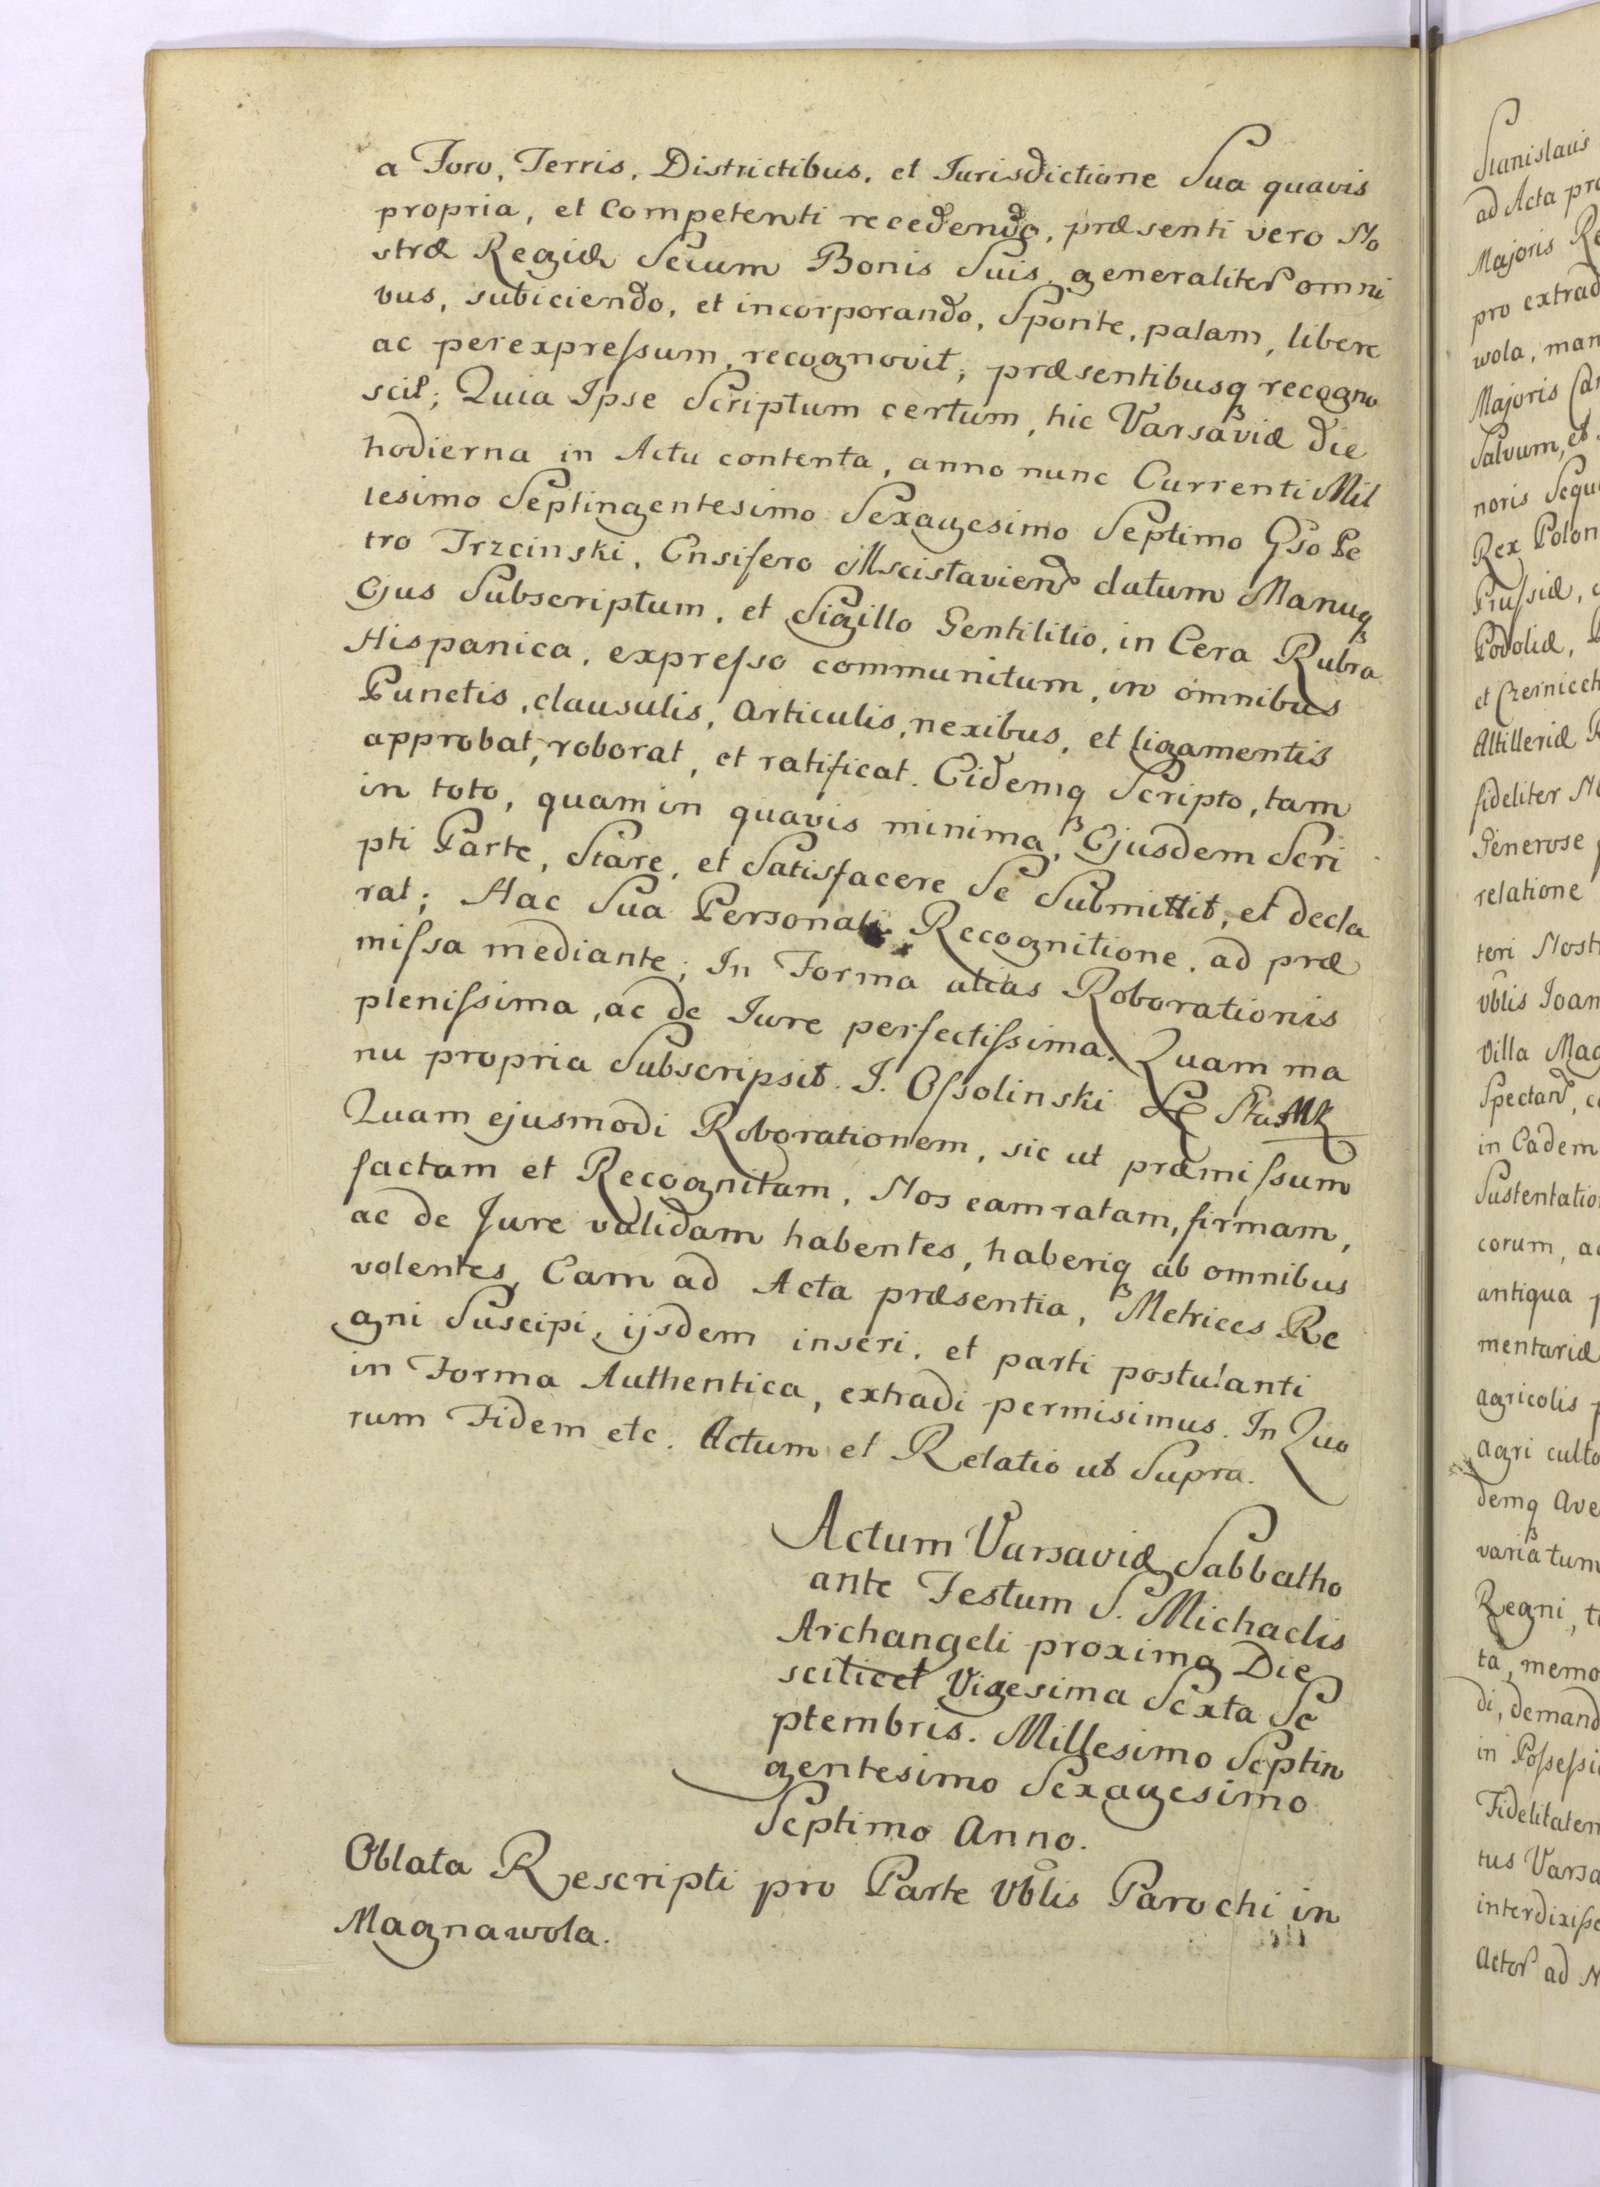 a Foro, Terris, Districtibus, et Jurisdictione Sua quavis
propria, et Competenti recedendo, præsenti vero No
stræ Regiæ Secum Bonis Suis generaliter omni
bus, subiciendo, et incorporando, Sponte, palam, libere
ac per expressum, recognovit, præsentibusq recogno
scit; Quia Ipse Scriptum certum, hic Varsaviæ die
hodierna in Actu contenta, anno nunc Currenti Mil
lesimo Septingentesimo Sexagesimo Septimo Gso Pe
tro Trzcinski, Ensifero Mscislaviens datum Manuq
Ejus Subscriptum, et Sigillo Gentilitio, in Cera Rubra
Hispanica, expresso communitum, in omnibus
Punctis, clausulis, Articulis, nexibus, et ligamentis
approbat, roborat, et ratificat. Eidemq Scripto, tam
in toto, quam in quavis minima, Ejusdem Scri
pti Parte, Stare, et Satisfacere Se Submittit, et decla
rat; Hac Sua Personali Recognitione, ad præ
missa mediante; In Forma alias Roborationis
plenissima, ac de Jure perfectissima. Quam ma
nu propria Subscripsit. J. Ossolinski
Quam ejusmodi Roborationem, sic ut præmissum
factam et Recognitam, Nos eam ratam, firmam,
ac de Jure validam habentes, haberiq ab omnibus
volentes, Eam ad Acta præsentia, Metrices Re
gni Suscipi, ijsdem inseri, et parti postulanti
in Forma Authentica, extradi permisimus. In Quo
rum Fidem etc. Actum et Relatio ut Supra.
Actum Varsaviæ Sabbatho
ante Festum S. Michaelis
Archangeli proximo Die
scilicet Vigesima Sexta Se
ptembris. Millesimo Septin
gentesimo Sexagesimo
Septimo Anno.
Oblata Rescripti pro Parte Vblis Parochi in
Magnawola.
Stanislaus
ad Acta
Majoris
pro
wola,
Majoris
Salvum, et
noris
Rex
Prussiæ,
Podoliæ,
et
Altilleriæ
fideliter
Generose
relatione
teri
Vblis
Villa
Spectan,
in Eadem
corum,
antiqua
mentariæ
agricolis
agri
demq
Regni,
ta,
di,
in
tus
ad